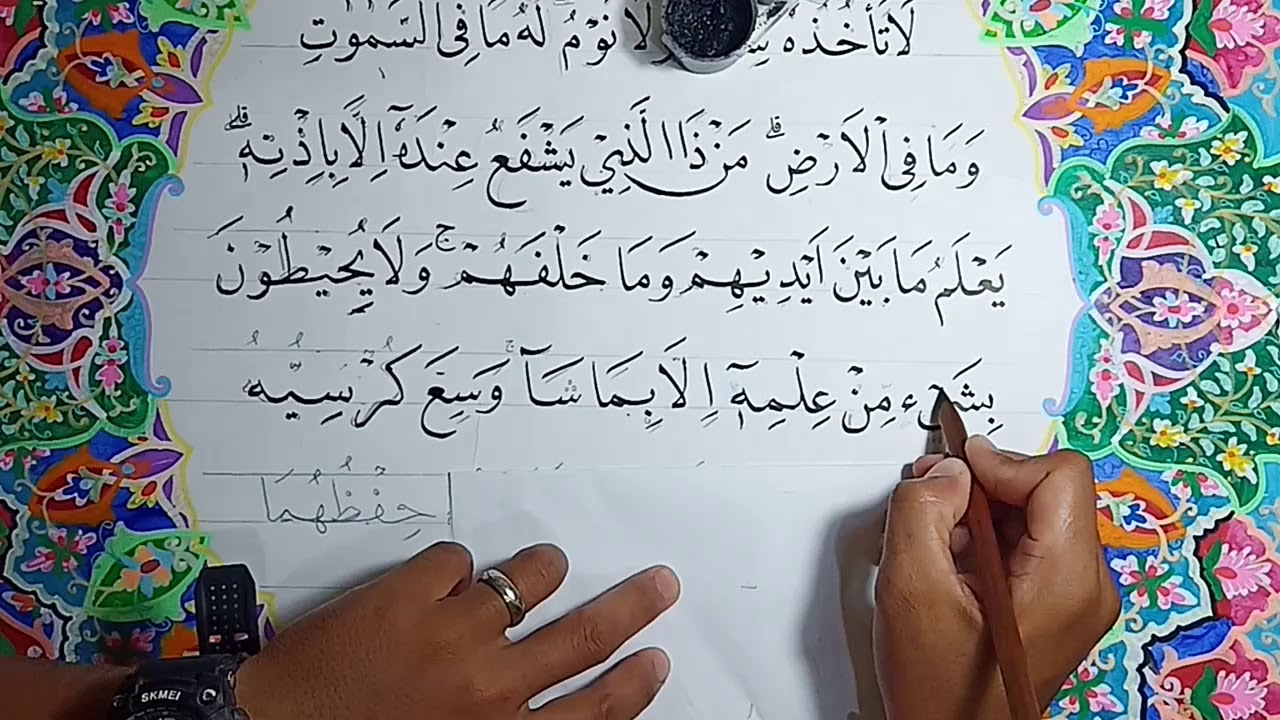 لَا تَأْخُذُهُ سِ لَا نَوْمٌ لَهُ مَا فِى السَّمٰوٰتِ
وَمَا فِى الْاَرْضِ ۗ مَنْ ذَا الَّذِيْ يَشْفَعُ عِنْدَهٗٓ اِلَّا بِاِذْنِهٖ ۗ
يَعْلَمُ مَا بَيْنَ اَيْدِيْهِمْ وَمَا خَلْفَهُمْ ۚ وَلَا يُحِيْطُوْنَ
بِشَيْءٍ مِّنْ عِلْمِهٖٓ اِلَّا بِمَا شَآءَ ۚ وَسِعَ كُرْسِيُّهُ
حِفْظُهُمَا
SKMEI